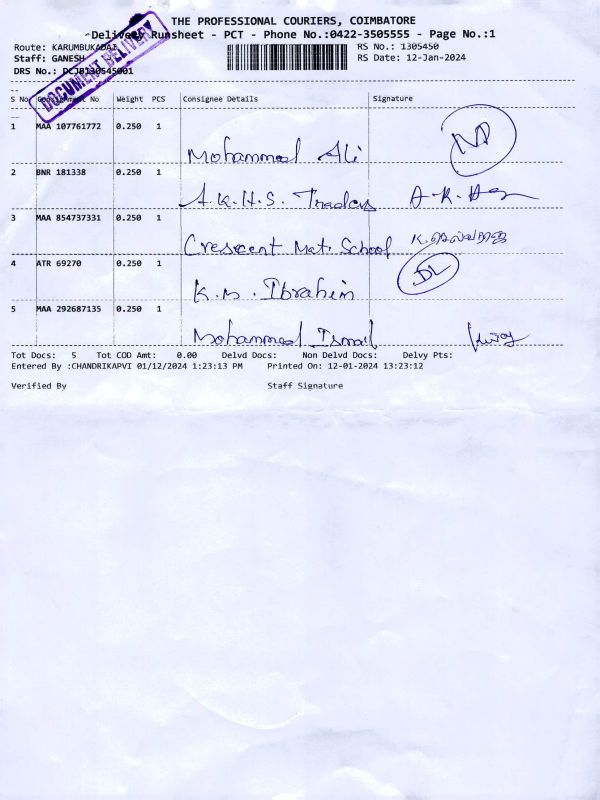 THE PROFESSIONAL COURIERS, COIMBATORE
Delivery Runsheet - PCT - Phone No.:0422-3505555 - Page No.:1
Route: KARUMBUKADAI
RS No.: 1305450
Staff: GANESH
RS Date: 12-Jan-2024
DRS No.: PCJB130545001
DOCUMENT DELIVERY
S No Consignment No Weight PCS Consignee Details Signature
1 MAA 107761772 0.250 1
Mohammed Ali
2 BNR 181338 0.250 1
A.K.H.S. Traders
3 MAA 854737331 0.250 1
Crescent Mat. School
4 ATR 69270 0.250 1 DL
K.M. Ibrahim
5 MAA 292687135 0.250 1
Mohammed Ismail
Tot Docs: 5 Tot COD Amt: 0.00 Delvd Docs: Non Delvd Docs: Delvy Pts:
Entered By :CHANDRIKAPVI 01/12/2024 1:23:13 PM Printed On: 12-01-2024 13:23:12
Verified By Staff Signature